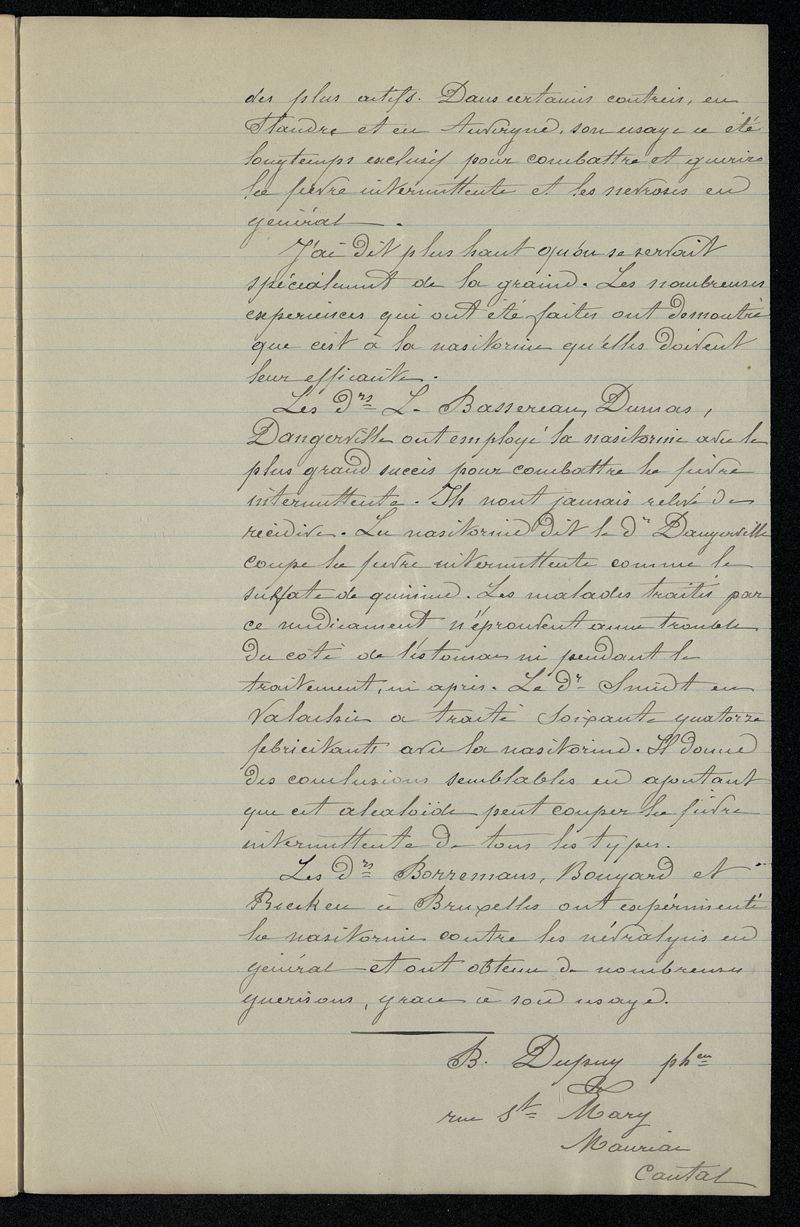 des plus actifs. Dans certains contreis, en
Flandre et en Auvergne, son usage a été
longtemps exclusif pour combattre et guerire
la fievre intermittente et les nevroses en
général.
J'ai dit plus haut qu'on se servait
spécialement de la graine. Les nombreuses
experiences qui ont été faites ont demontré
que c'est à la nasitorine qu'elles doivent
leur efficacité.
Les drs L. Bassereau, Dumas,
Dangerville ont employé la nasitorine avec le
plus grand succès pour combattre la fievre
intermittente. Ils n'ont jamais relevé de
recidive. La nasitorine dit le dr Dangerville
coupe la fievre intermittente comme le
sulfate de quinine. Les malades traités par
ce medicament n'éprouvent aucun trouble
du coté de l'éstomac ni pendant le
traitement, ni apres. Le dr Smidt en
Valachie a traité soixante quatorze
febricitants avec la nasitorine. Il donne
des conclusions semblables en ajoutant
que cet alcaloïde peut couper la fièvre
intermittente de tous les types.
Les drs Borremans, Bougard et
à Bruxelles ont expérimenté
la nasitorine contre les névralgies en
général et ont obtenu de nombreuses
guerisons, grace à son usage.
B. Dupuy phen
rue St Mary
Mauriac
Cantal